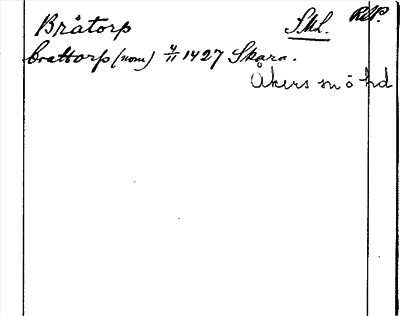 Bråtorp SML. RAP.
brattorp (nom) 4/11 1427 Skara.
Åkers sn ö hd